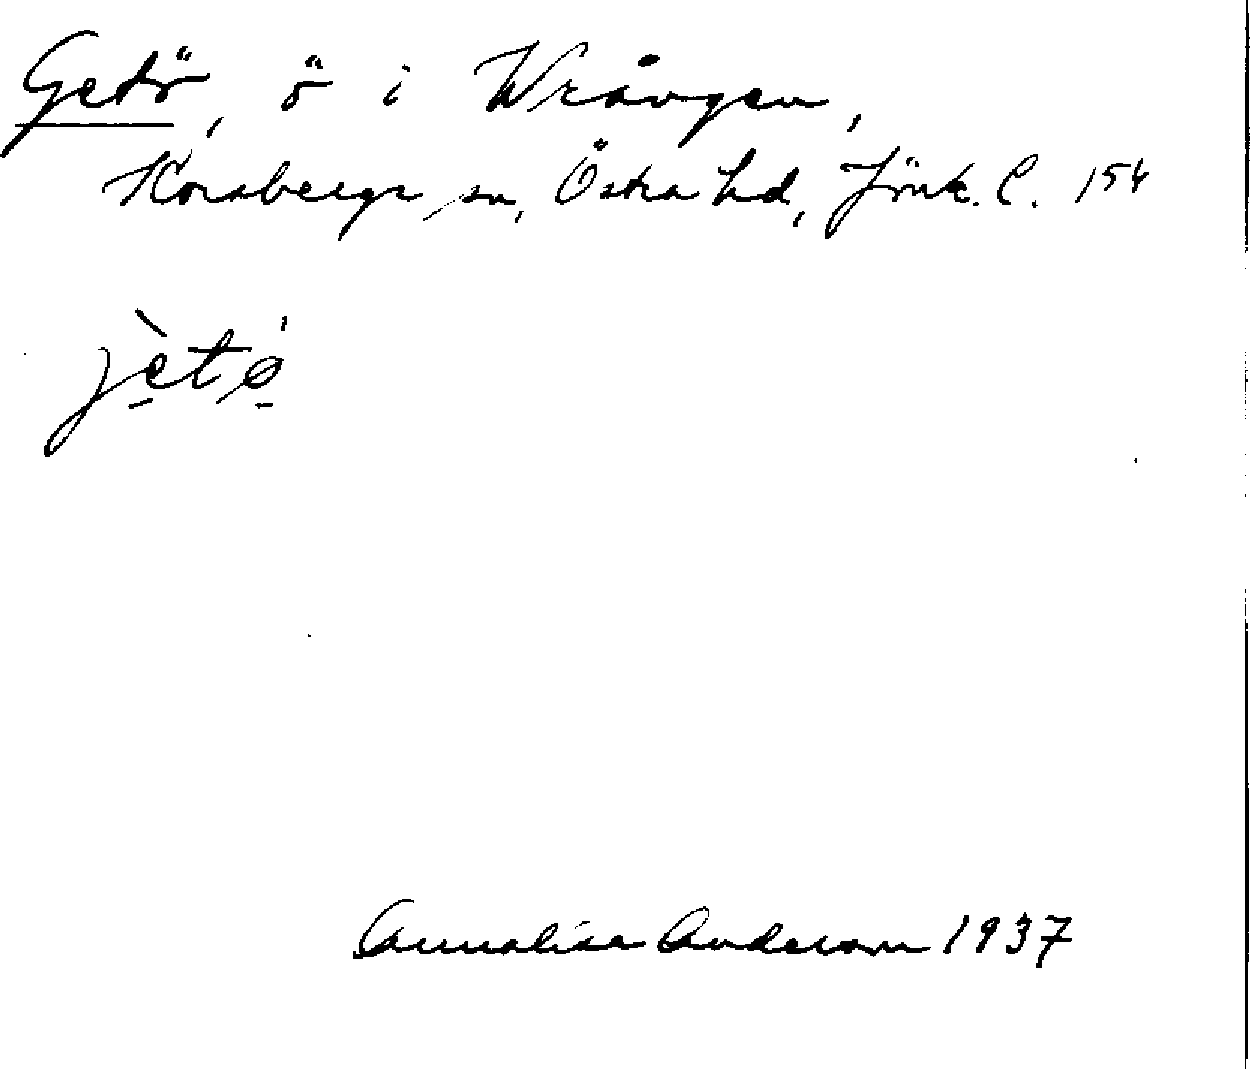 Getö, ö i Wrången,
Korsberga sn, Östra hd, Jönk. l. 154
jètö́
Annalisa Anderson 1937